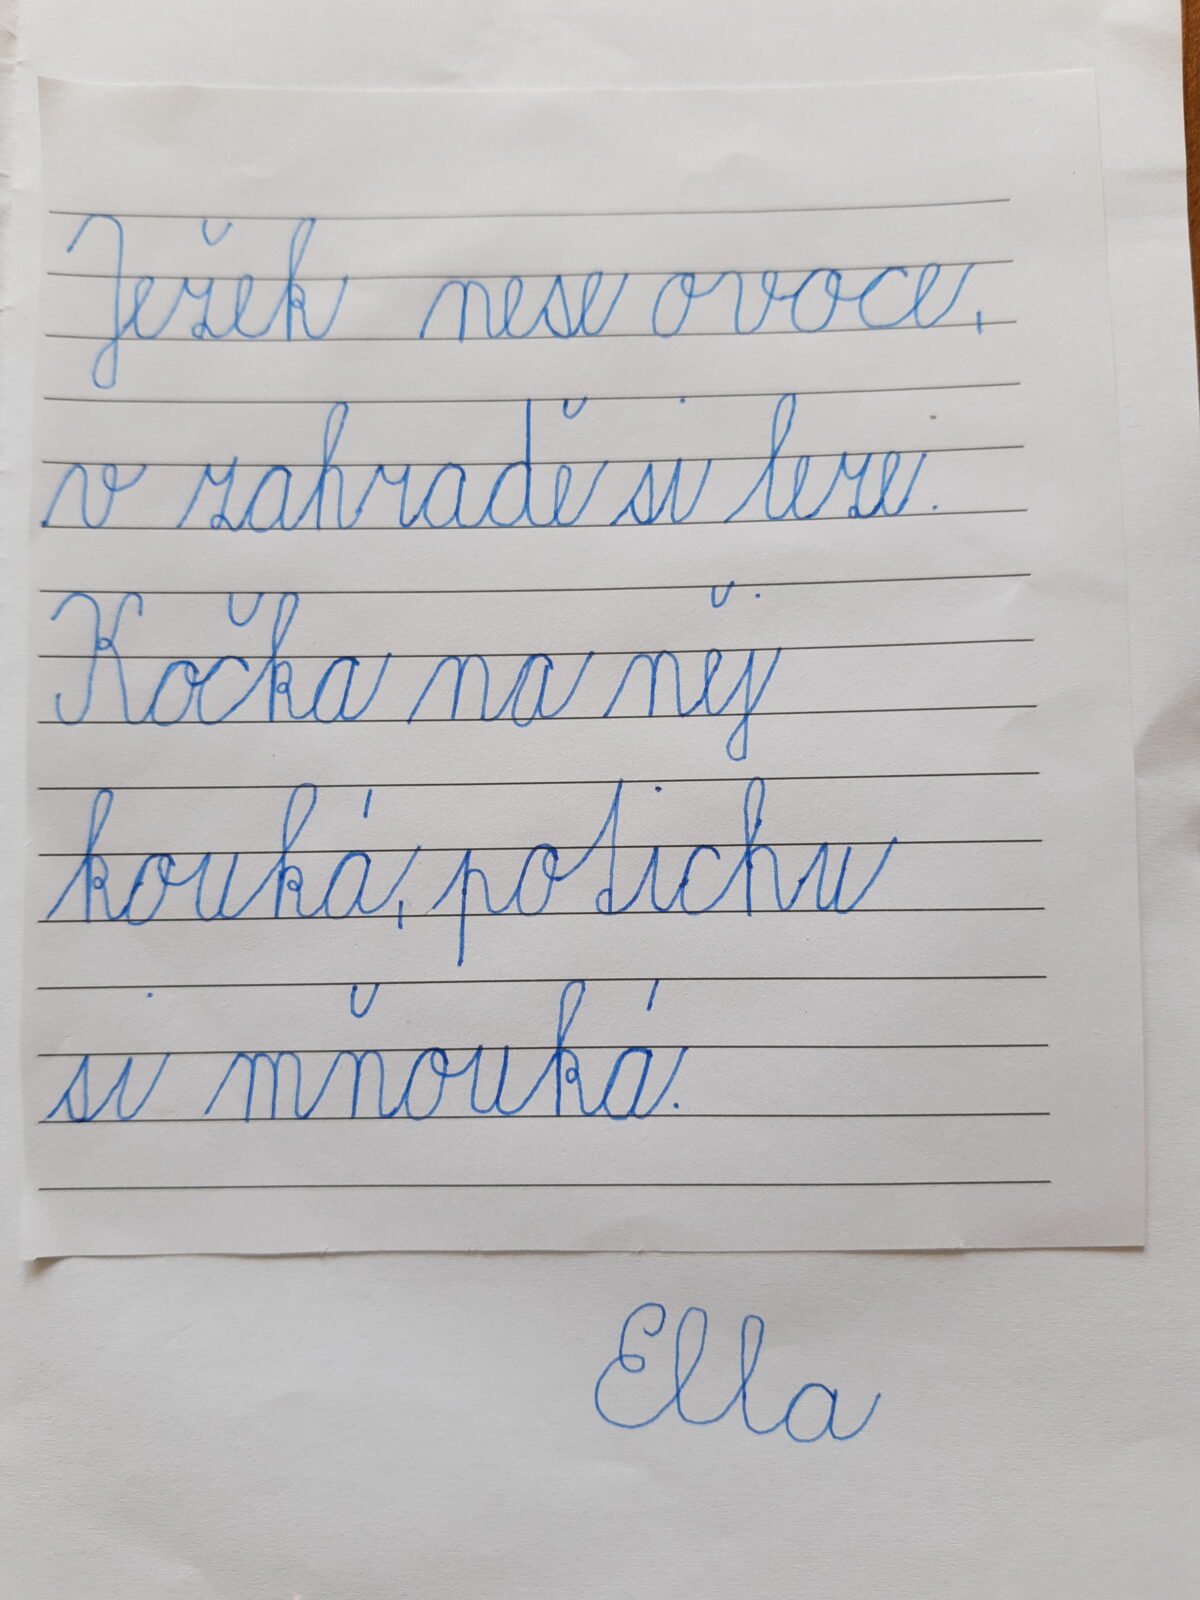 Ježek nese ovoce,
v zahradě si leze.
Kočka na něj
kouká, potichu
si mňouká.
Ella